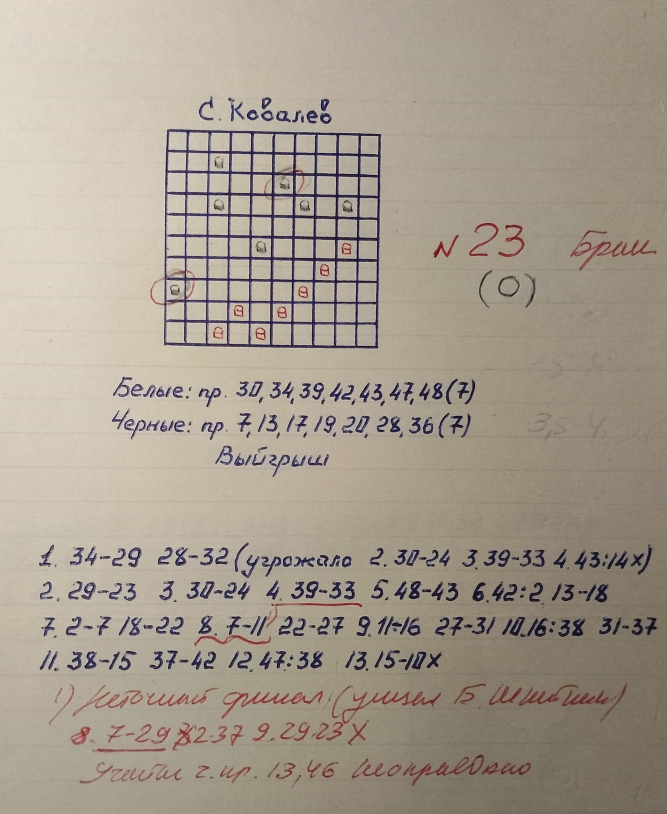 С. Ковалев
N 23 Брак
(0)
Белые: пр. 30, 34, 39, 42, 43, 47, 48 (7)
Черные: пр. 7, 13, 17, 19, 20, 28, 36 (7)
Выйгрыш
1. 34-29 28-32 (угрожало 2. 30-24 3. 39-33 4. 43:14x)
2. 29-23 3. 30-24 4. 39-33 5. 48-43 6. 42:2 13-18
7. 2-7 18-22 8. 7-11 22-27 9. 11-16 27-31 10. 16:38 31-37
11. 38-15 37-42 12. 47:38 13. 15-10x
1) Неточный финал (указал Б.
8. 7-29 3237 9. 2923 X
ч. пр. 13, 46 неоправдано